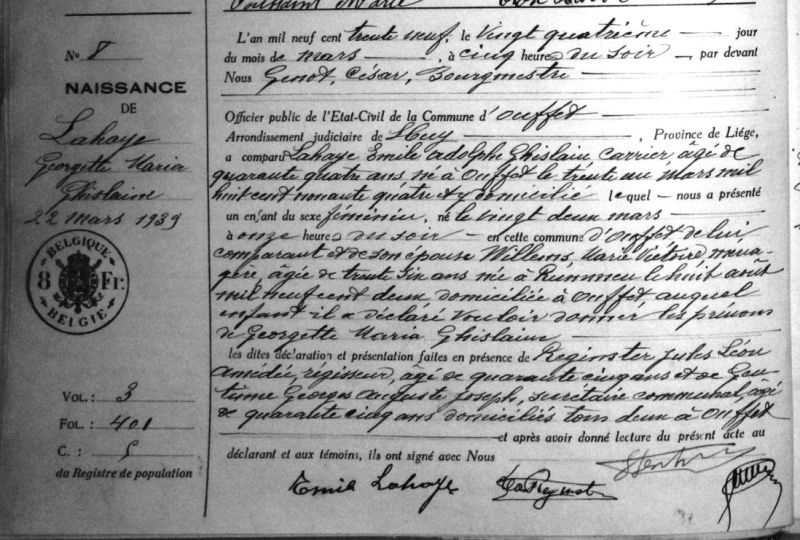 Toussaint Marie
N° 8
NAISSANCE
DE
Lahaye
Georgette Maria
Ghislaine
22 mars 1939
BELGIQUE
8 Fr.
BELGIË
VOL.: 3
FOL.: 401
C.: 5
du Registre de population
L'an mil neuf cent trente neuf, le vingt quatrième jour
du mois de mars, à cinq heures du soir, par devant
Nous Genot, César, Bourgmestre
Officier public de l'Etat-Civil de la Commune d'Ouffet
Arrondissement judiciaire de Huy, Province de Liége,
a comparu Lahaye Emile Adolphe Ghislain, carrier, âgé de
quarante quatre ans né à Ouffet le trente au mars mil
huit cent nonante quatre et y domicilié lequel nous a présenté
un enfant du sexe féminin, né le vingt deux mars
à onze heures du soir en cette commune d'Ouffet de lui
comparant et de son épouse Willems, Marie Victoire, ména-
gère, âgée de trente six ans née à Rummen le huit août
mil neuf cent deux, domiciliée à Ouffet auquel
enfant il a déclaré vouloir donner les prénoms
de Georgette Maria Ghislaine
les dites déclaration et présentation faites en présence de Reginster, Jules Léon
Amédée, régisseur, âgé de quarante cinq ans et de
Georges Auguste Joseph, secrétaire communal, âgé
de quarante cinq ans domiciliés tous deux à Ouffet
et après avoir donné lecture du présent acte au
déclarant et aux témoins, ils ont signé avec Nous
Emile Lahaye